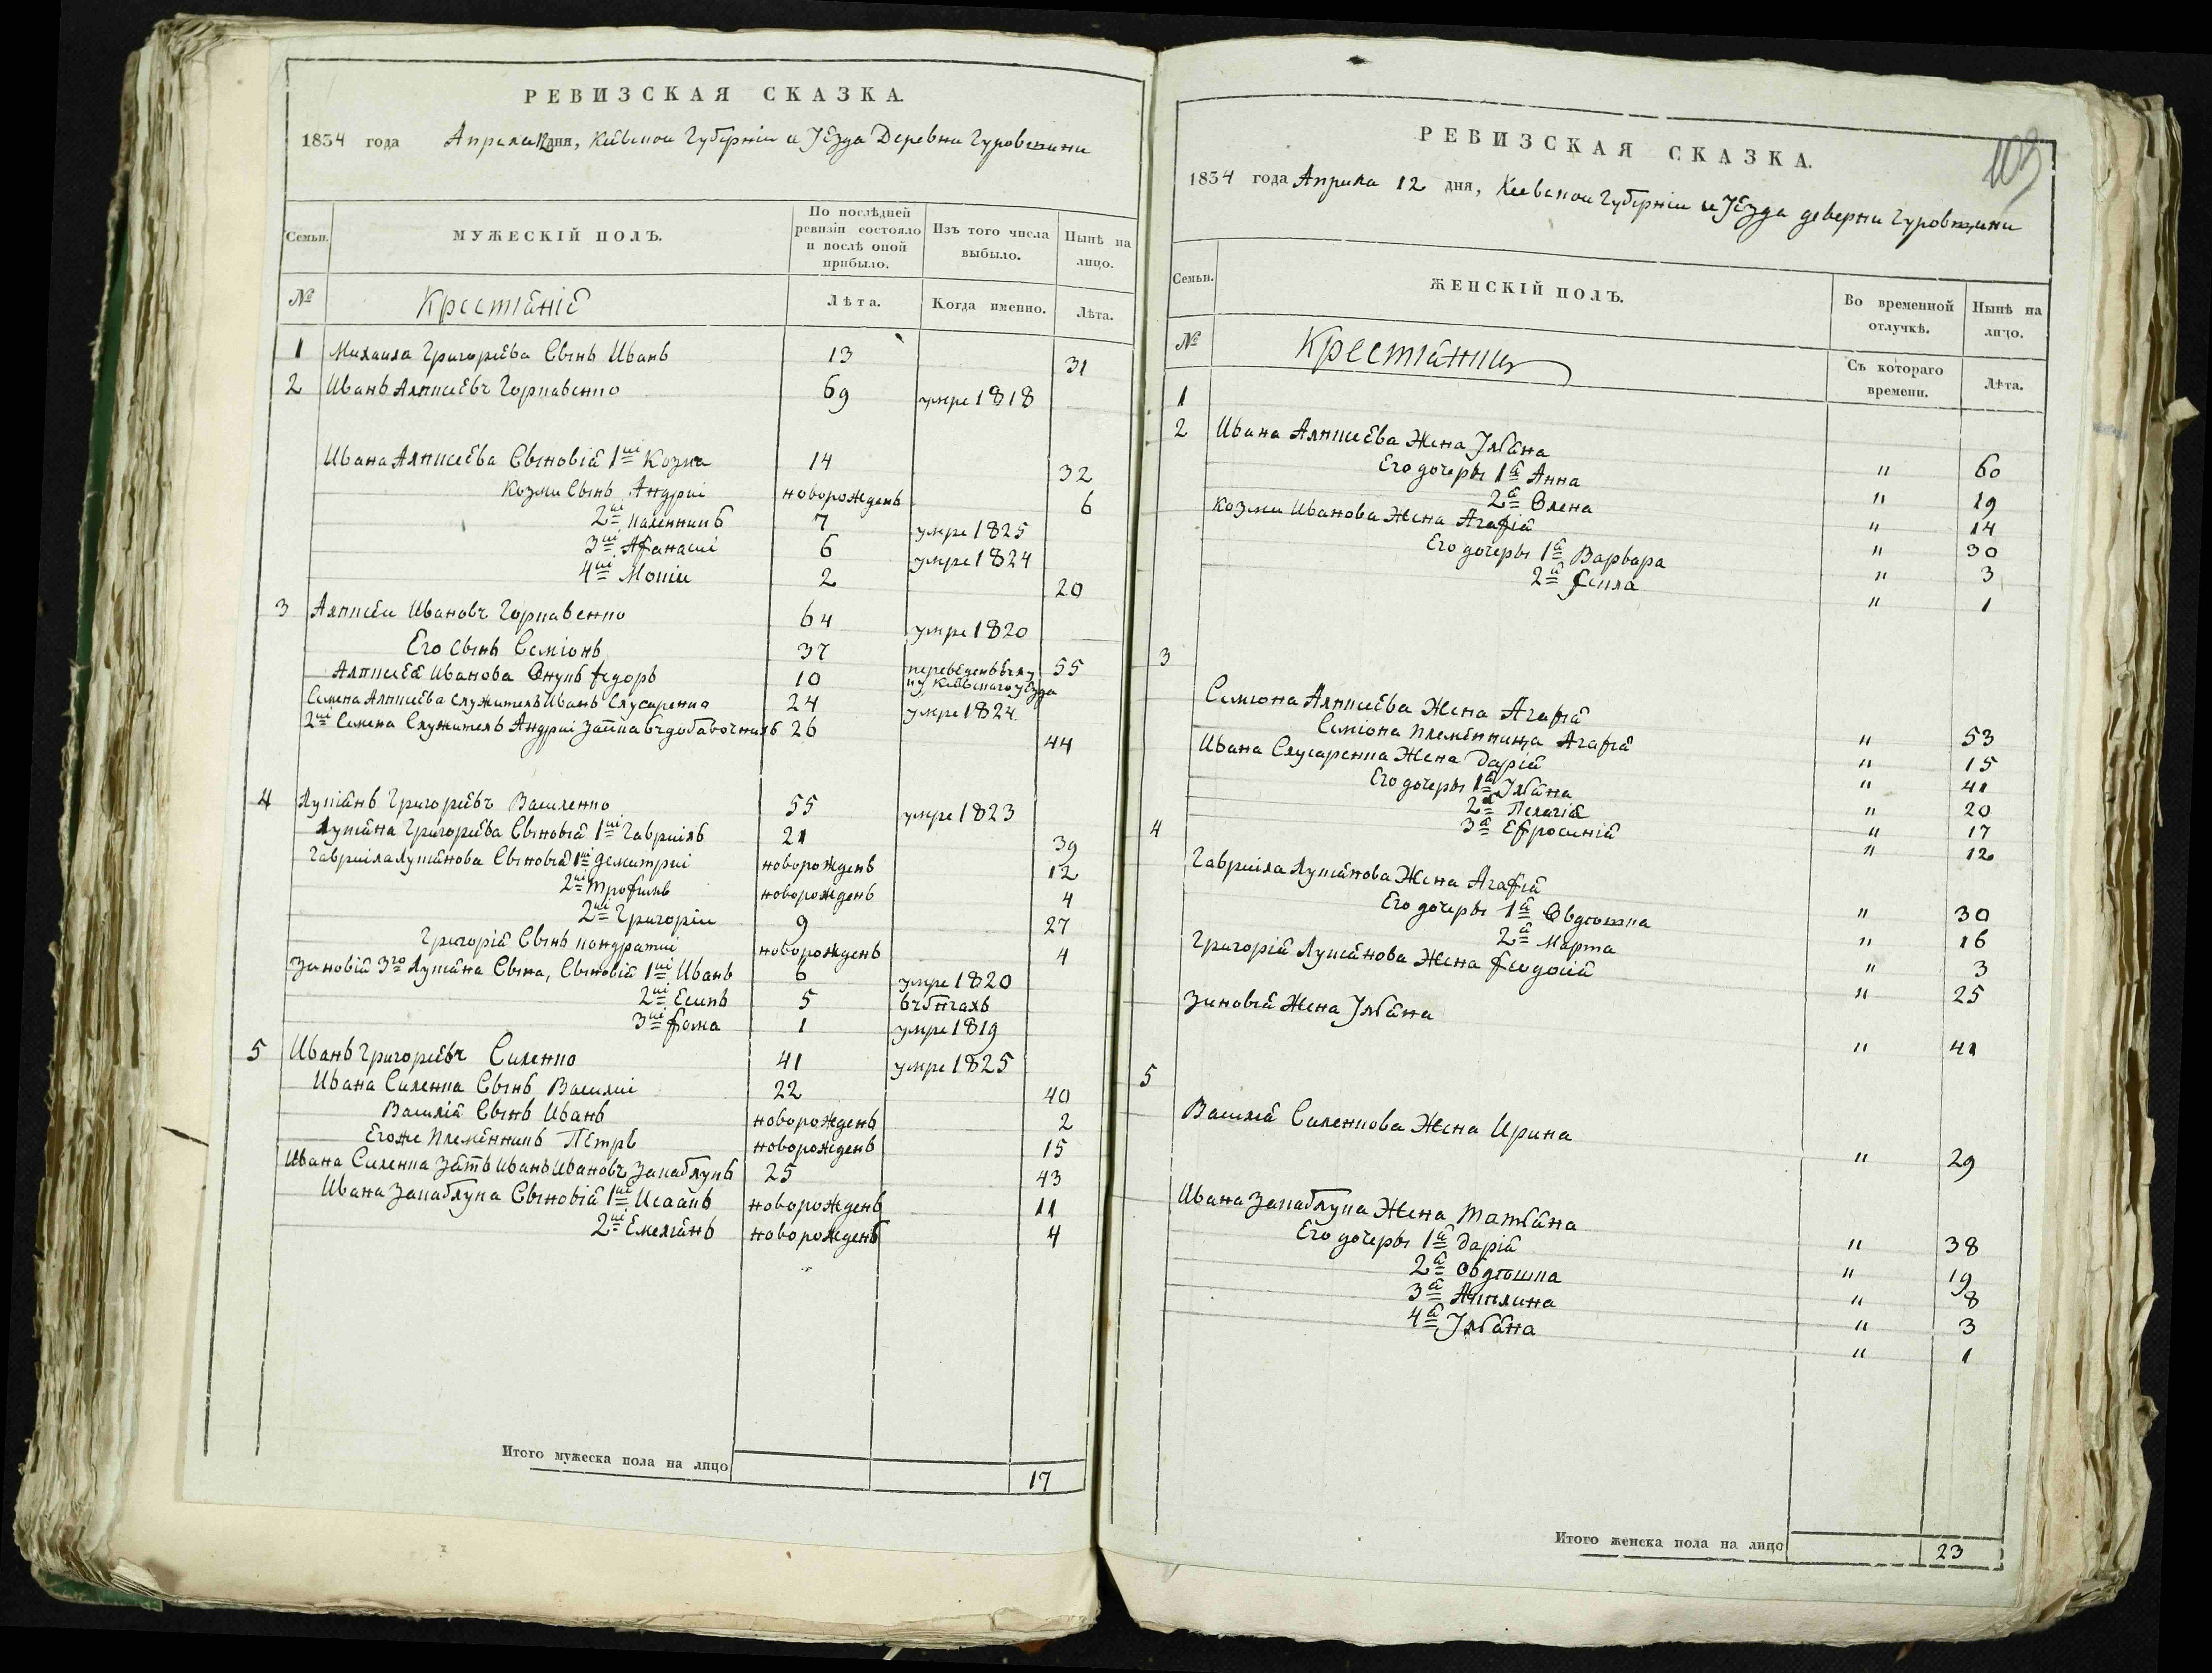 РЕВИЗСКАЯ СКАЗКА.
1834 года Априля 12 дня, Киевской Губерніи и Уѣзда Деревни Гуровщини
Семьи. МУЖЕСКІЙ ПОЛЪ. По послѣдней ревизіи состояло и послѣ оной прибыло. Изъ того числа выбыло. Нынѣ на лицо.
№ Крестіянѣ Лѣта. Когда именно. Лѣта.
1 Михаила Григоріева Сынъ Иванъ 13 31
2 Иванъ Алексіевъ Горкавенко 69 умре 1818
Ивана Алексіева Сыновія 1й Козма 14 32
Козми Сынъ Андрій новорожденъ 6
2й 7 умре 1825
3й Афанасій 6 умре 1824
4й Мокій 2 20
3 Алексій Ивановъ Горкавенко 64 умре 1820
Его Сынъ Семіонъ 37 55
Алексія Иванова Внукъ Федоръ 10 переведенъ Киевскаго уѣзда
Семена Алексіева служитель Иванъ Слусаренко 24 умре 1824.
2й Семена Служитель Андрій 26 44
4 Лукіянъ Григоріевъ Василенко 55 умре 1823
Лукіяна Григоріева Сыновія 1й Гавріилъ 21 39
Гавріила Лукіянова Сыновія 1й Демитрій новорожденъ 12
2й Трофимъ новорожденъ 4
2й Григорій 9 27
Григорія Сынъ Кондратій новорожденъ 4
Зиновій 3го Лукіяна Сына, Сыновія 1й Иванъ 6 умре 1820
2й Есипъ 5 въ бѣгахъ
3й Фома 1 умре 1819
5 Иванъ Григоріевъ Силенко 41 умре 1825
Ивана Силенка Сынъ Василій 22 40
Василія Сынъ Иванъ новорожденъ 2
Егоже Племенникъ Петръ новорожденъ 15
Ивана Силенка Зять Иванъ Ивановъ Закаблукъ 25 43
Ивана Закаблука Сыновія 1й Исаакъ новорожденъ 11
2й Емеліянъ новорожденъ 4
Итого мужеска пола на лицо 17
РЕВИЗСКАЯ СКАЗКА.
103
1834 года Априля 12 дня, Киевской Губерніи и Уѣзда деверни Гуровщини
Семьи. ЖЕНСКІЙ ПОЛЪ. Во временной отлучкѣ. Нынѣ на лицо.
№ Крестіянки Съ котораго времени. Лѣта.
1
2 Ивана Алексіева Жена Уліяна " 60
Его дочеры 1я Анна " 19
2я Олена " 14
Козми Иванова Жена Агафія " 30
Его дочеры 1я Варвара " 3
2я Фекла " 1
3
Семіона Алексіева Жена Агафія " 53
Семіона племенница Агафія " 15
Ивана Слусаренка Жена Дарія " 41
Его дочеры 1я Уліяна " 20
2я Пелагія " 17
3я Ефросинія " 12
4
Гавріила Лукіянова Жена Агафія " 30
Его дочеры 1я Овдотшка " 16
2я Марта " 3
Григорія Лукіянова Жена Феодосія " 25
Зиновія Жена Уліяна " 41
5
Василія Силенкова Жена Ирина " 29
Ивана Закаблука Жена Татіяна " 38
Его дочеры 1я Дарія " 19
2я Овдотшка " 8
3я Акилина " 3
4я Уліяна " 1
Итого женска пола на лицо 23